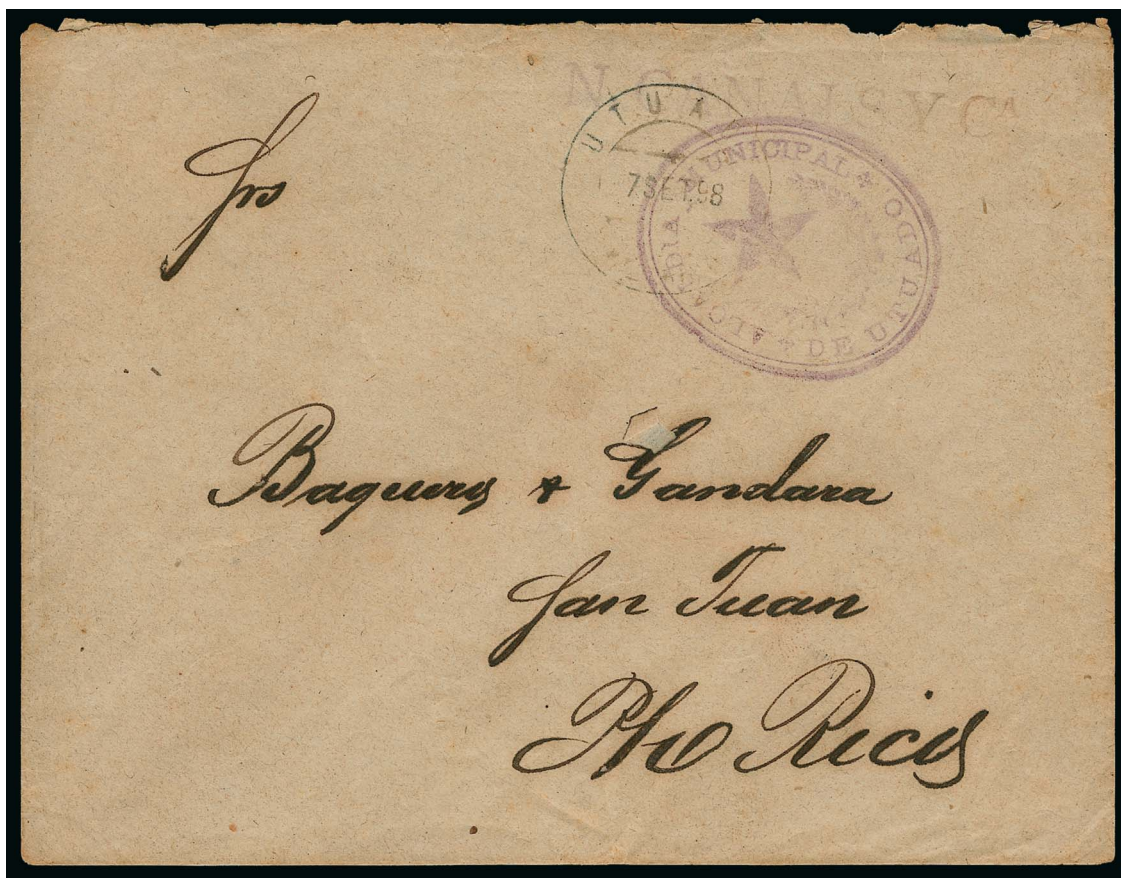 N. CANALS Y Cª
UTUA
7 SET. 98
ALCALDIA MUNICIPAL * DE UTUADO.
Srs
Baquero & Gandara
San Juan
Pto Rico